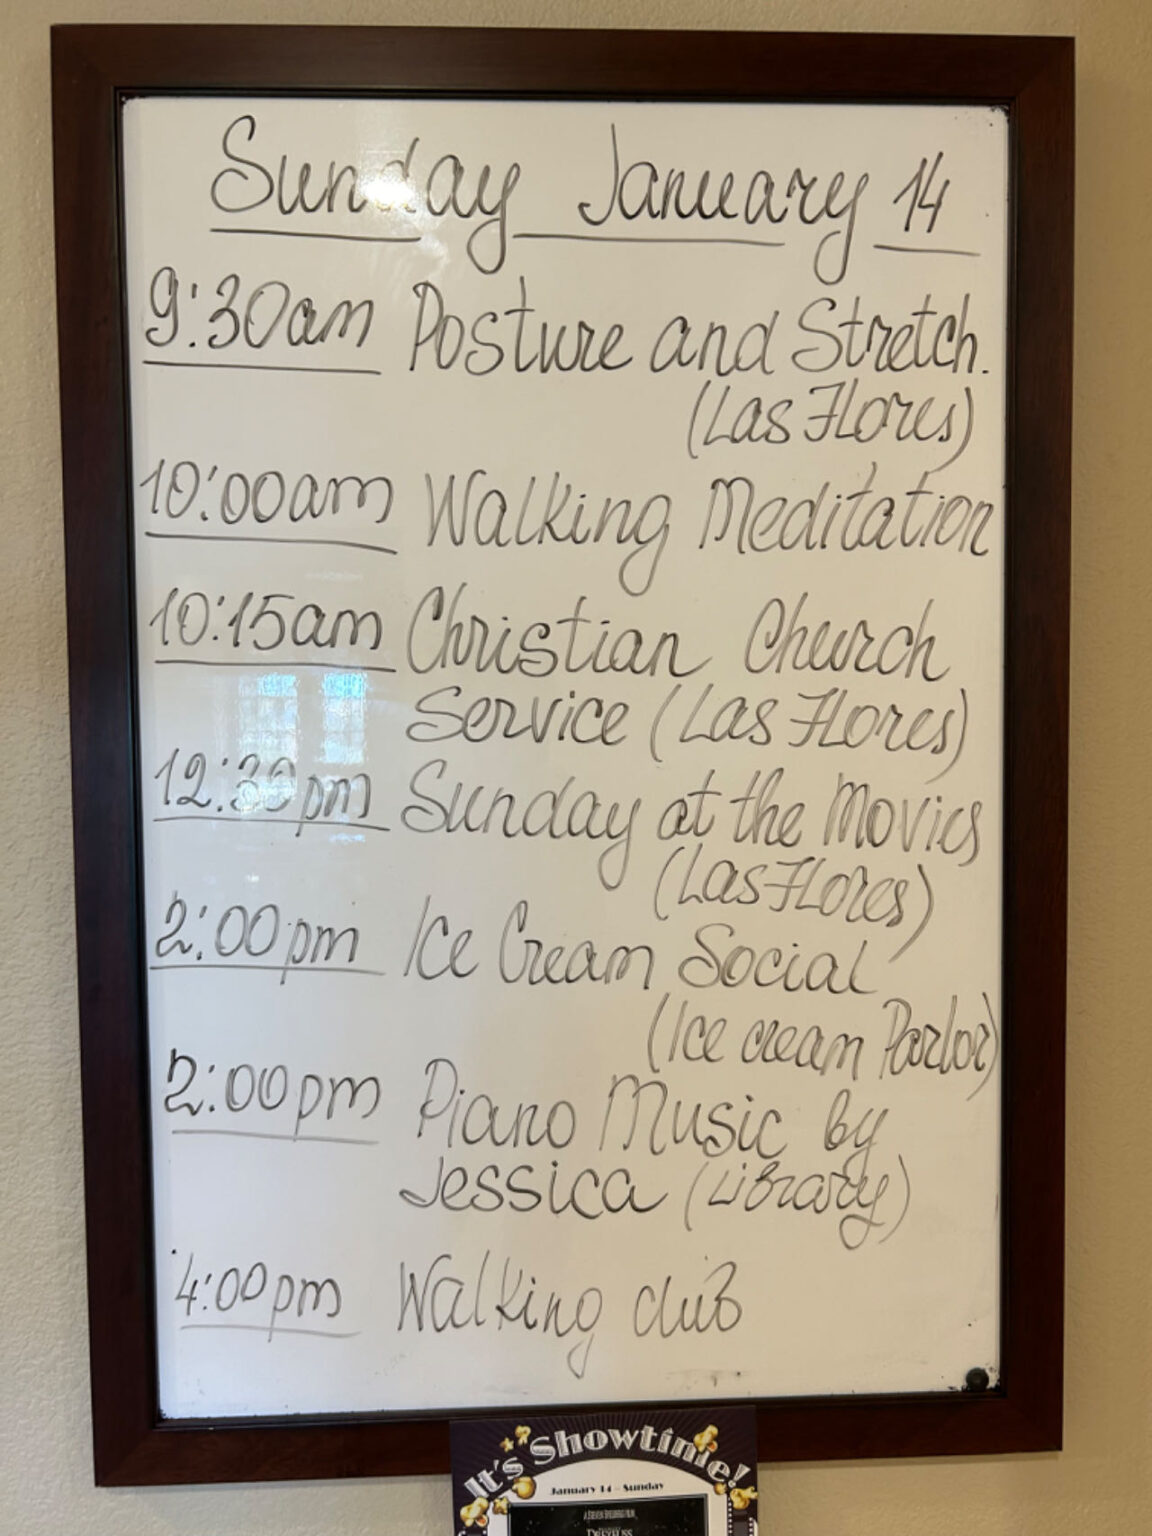 Sunday January 14
9:30am Posture and Stretch.
(Las Flores)
10:00am Walking Meditation
10:15am Christian Church
Service (Las Flores)
12:30pm Sunday at the Movies
(Las Flores)
2:00pm Ice Cream Social
(Ice cream Parlor)
2:00pm Piano Music by
Jessica (Library)
4:00pm Walking club
It's Showtime!
January 14 - Sunday